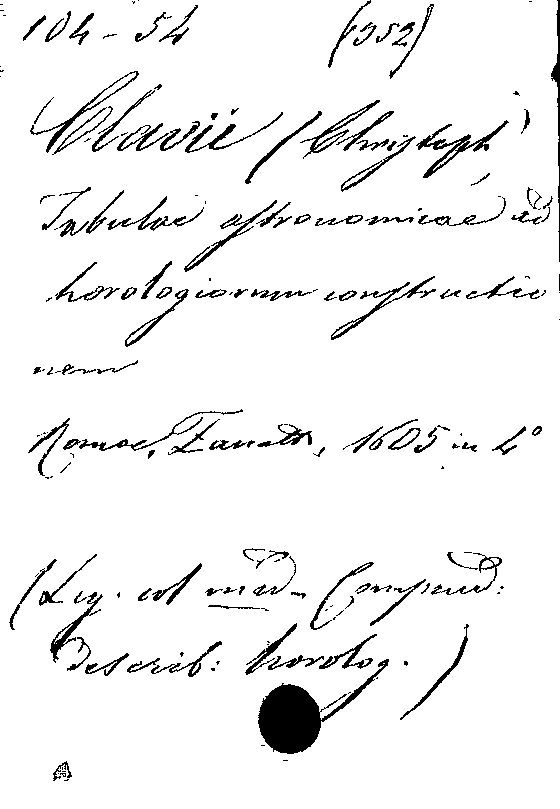 104-54 (952)
Clavii (Christoph)
Tabulae astronomicae ad
horologiorum constructio
nem
Romae, Zanetti, 1605 in 4°
(Lig. col Compend:
describ: horolog.)